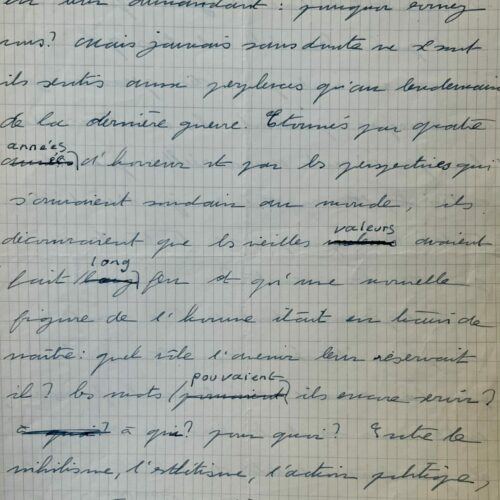 leur demandant : pourquoi écrivez
vous? Mais jamais sans doute ne se sont
ils sentis aussi perplexes qu'au lendemain
de la dernière guerre. Etonnés par quatre
années
d'horreur et par les perspectives qui
s'ouvraient soudain au monde, ils
valeurs
découvraient que les vieilles avaient
long
fait feu et qu'une nouvelle
figure de l'homme était en train de
naître : quel rôle l'avenir leur réservait
pouvaient
il? les mots ils encore servir?
à quoi? à qui? pour quoi? Entre le
nihilisme, l'esthétisme, l'action politique,